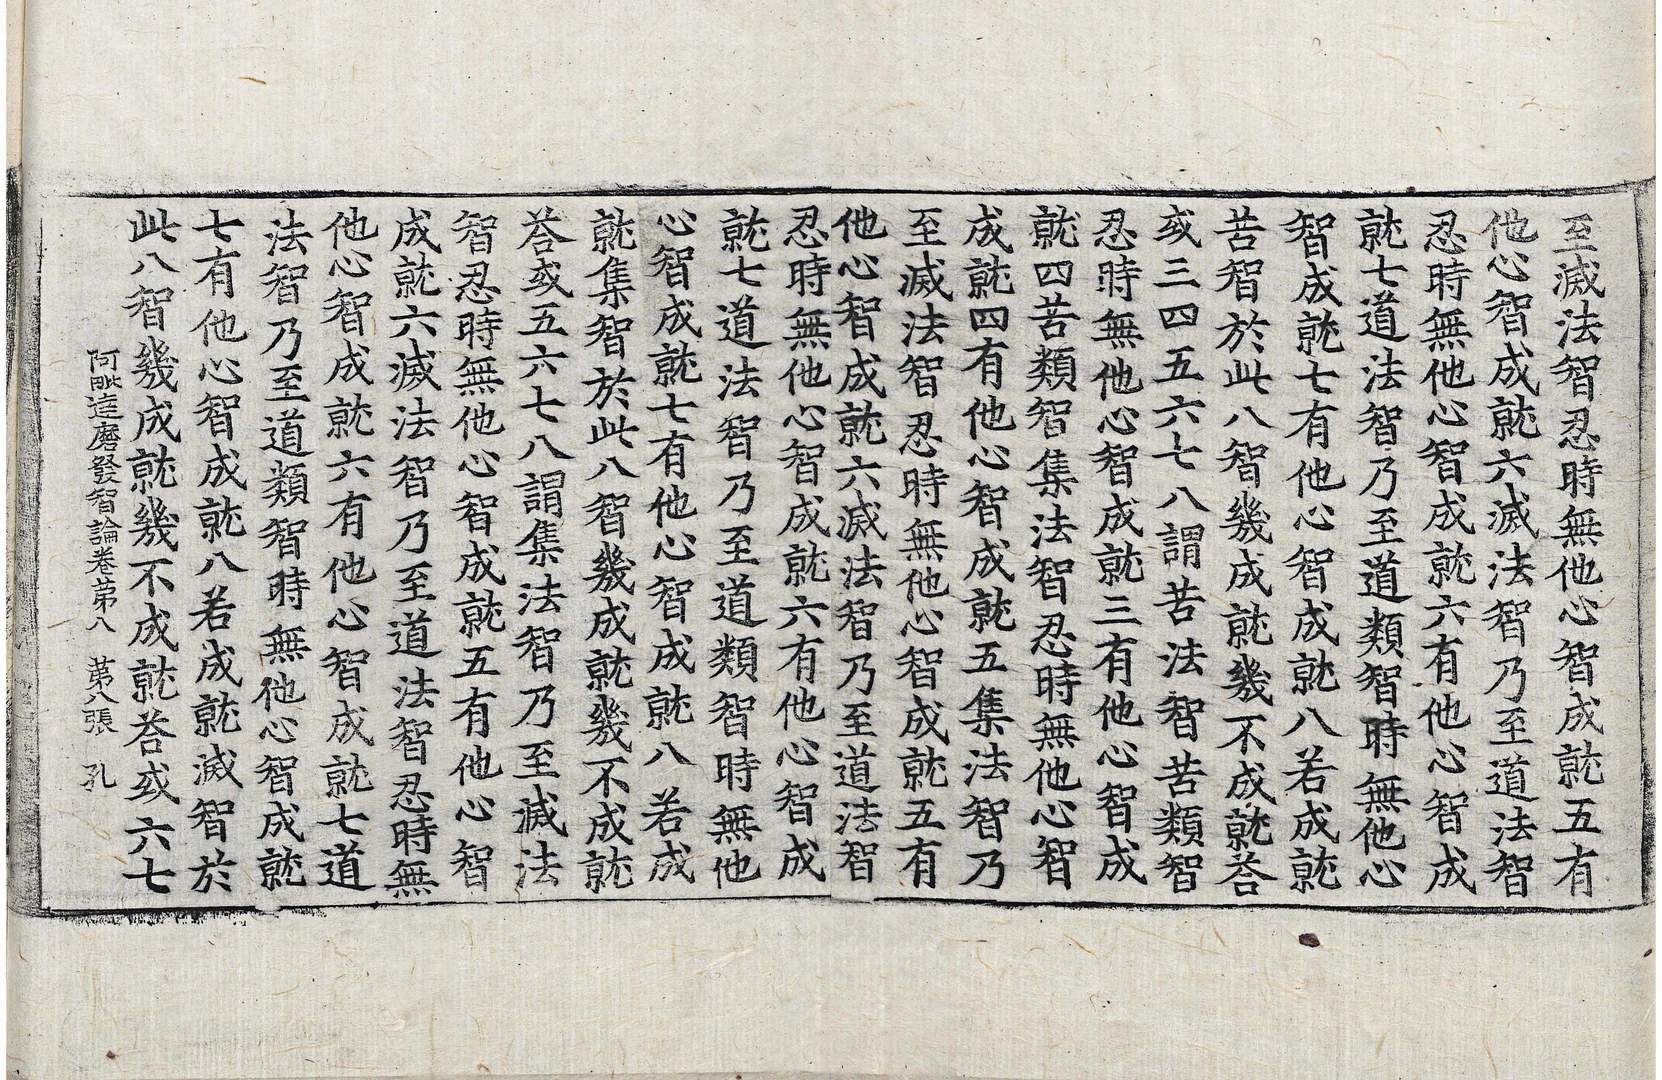 至滅法智忍時無他心智成就五有
他心智成就六滅法智乃至道法智
忍時無他心智成就六有他心智成
就七道法智乃至道類智時無他心
智成就七有他心智成就八若成就
苦智於此八智幾成就幾不成就荅
或三四五六七八謂苦法智苦類智
忍時無他心智成就三有他心智成
就四苦類智集法智忍時無他心智
成就四有他心智成就五集法智乃
至滅法智忍時無他心智成就五有
他心智成就六滅法智乃至道法智
忍時無他心智成就六有他心智成
就七道法智乃至道類智時無他
心智成就七有他心智成就八若成
就集智於此八智幾成就幾不成就
荅或五六七八謂集法智乃至滅法
智忍時無他心智成就五有他心智
成就六滅法智乃至道法智忍時無
他心智成就六有他心智成就七道
法智乃至道類智時無他心智成就
七有他心智成就八若成就滅智於
此八智幾成就幾不成就荅或六七
阿毗達磨發智論卷苐八 苐八張 孔